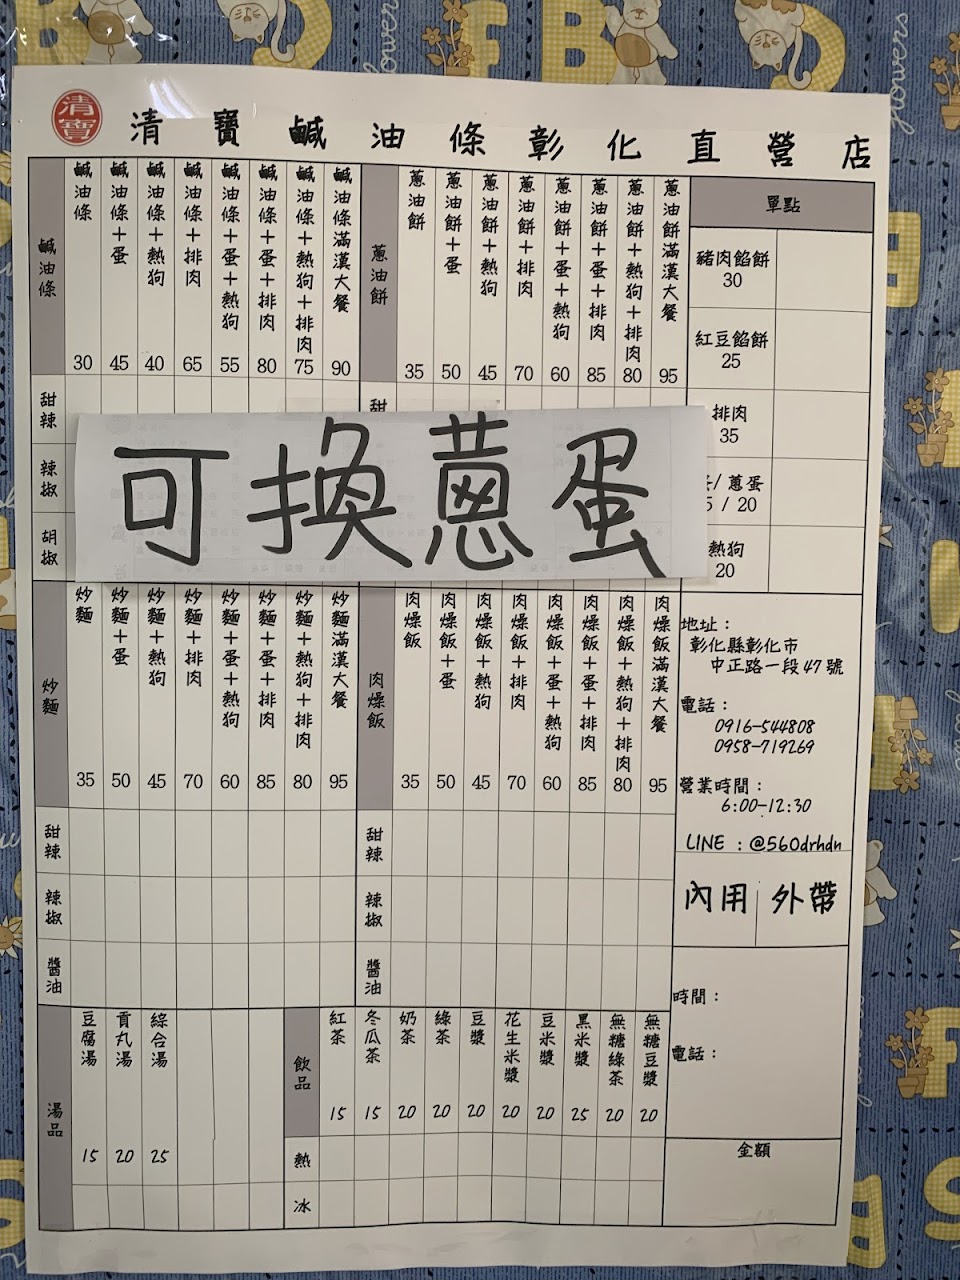 清寶
清寶鹹油條彰化直營店
鹹油條
鹹油條 30
鹹油條+蛋 45
鹹油條+熱狗 40
鹹油條+排肉 65
鹹油條+蛋+熱狗 55
鹹油條+蛋+排肉 80
鹹油條+熱狗+排肉 75
鹹油條滿漢大餐 90
甜辣
辣椒
胡椒
蔥油餅
蔥油餅 35
蔥油餅+蛋 50
蔥油餅+熱狗 45
蔥油餅+排肉 70
蔥油餅+蛋+熱狗 60
蔥油餅+蛋+排肉 85
蔥油餅+熱狗+排肉 80
蔥油餅滿漢大餐 95
甜
單點
豬肉餡餅
30
紅豆餡餅
25
排肉
35
/ 蔥蛋
5 / 20
熱狗
20
可換蔥蛋
炒麵
炒麵 35
炒麵+蛋 50
炒麵+熱狗 45
炒麵+排肉 70
炒麵+蛋+熱狗 60
炒麵+蛋+排肉 85
炒麵+熱狗+排肉 80
炒麵滿漢大餐 95
甜辣
辣椒
醬油
肉燥飯
肉燥飯 35
肉燥飯+蛋 50
肉燥飯+熱狗 45
肉燥飯+排肉 70
肉燥飯+蛋+熱狗 60
肉燥飯+蛋+排肉 85
肉燥飯+熱狗+排肉 80
肉燥飯滿漢大餐 95
甜辣
辣椒
醬油
地址：
彰化縣彰化市
中正路一段47號
電話：
0916-544808
0958-719269
營業時間：
6:00-12:30
LINE：@560drhdn
內用 外帶
時間：
電話：
金額
湯品
豆腐湯 15
貢丸湯 20
綜合湯 25
飲品
紅茶 15
冬瓜茶 15
奶茶 20
綠茶 20
豆漿 20
花生米漿 20
豆米漿 20
黑米漿 25
無糖綠茶 20
無糖豆漿 20
熱
冰